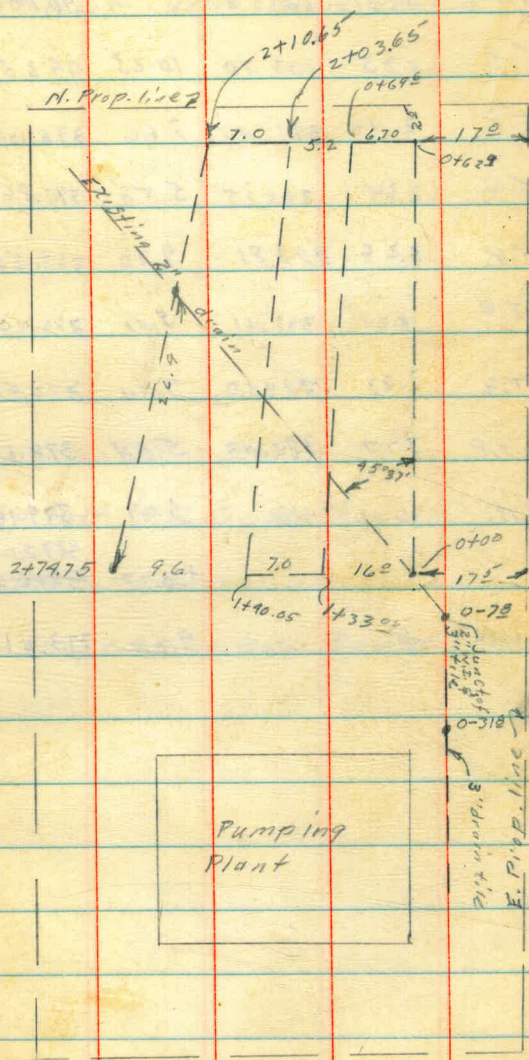 2+10.65
2+03.65
0+69⁶
N. Prop. line
7.0 5.2 6.70 17⁰
0+62⁹
Existing 2" drain
26.9
45°37'
0+00
2+74.75 9.6 7.0 16⁰ 17⁵
1+40.05 1+33.05
0-7⁸
Junct of
0-31⁸
3" drain tile
E. Prop. line
Pumping
Plant